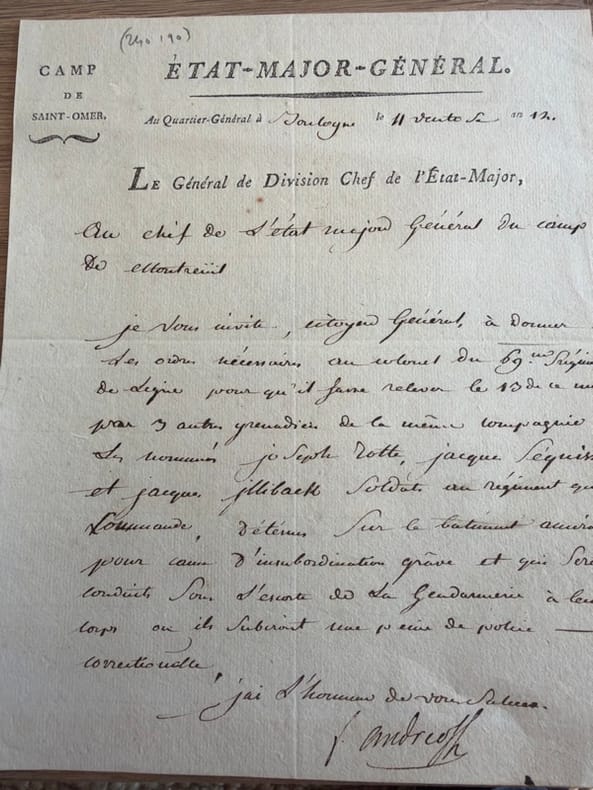 (240 190)
CAMP
DE
SAINT-OMER.
ÉTAT-MAJOR-GÉNÉRAL.
Au Quartier-Général à Boulogne le 11 ventose an 12.
LE Général de Division Chef de l'État-Major,
Au chef de L'état major Général du camp
De Montreuil
je vous invite, citoyen Général, à donner
Les ordres nécessaires au colonel du 69me Régim
de Ligne pour qu'il fasse relever le 13 de ce
par 3 autres grenadiers de la même compagnie
Les nommés joseph jacques
et jacques Soldats au régiment qu
Commande, Détenus Sur le batiment amiral
pour cause D'insubordination grave et qui Sero
conduits Sous L'escorte de La Gendarmerie à leu
corps ou ils Subiront une peine de police —
correctionelle.
j'ai L'honneur de vous Saluer.
f. andreossy